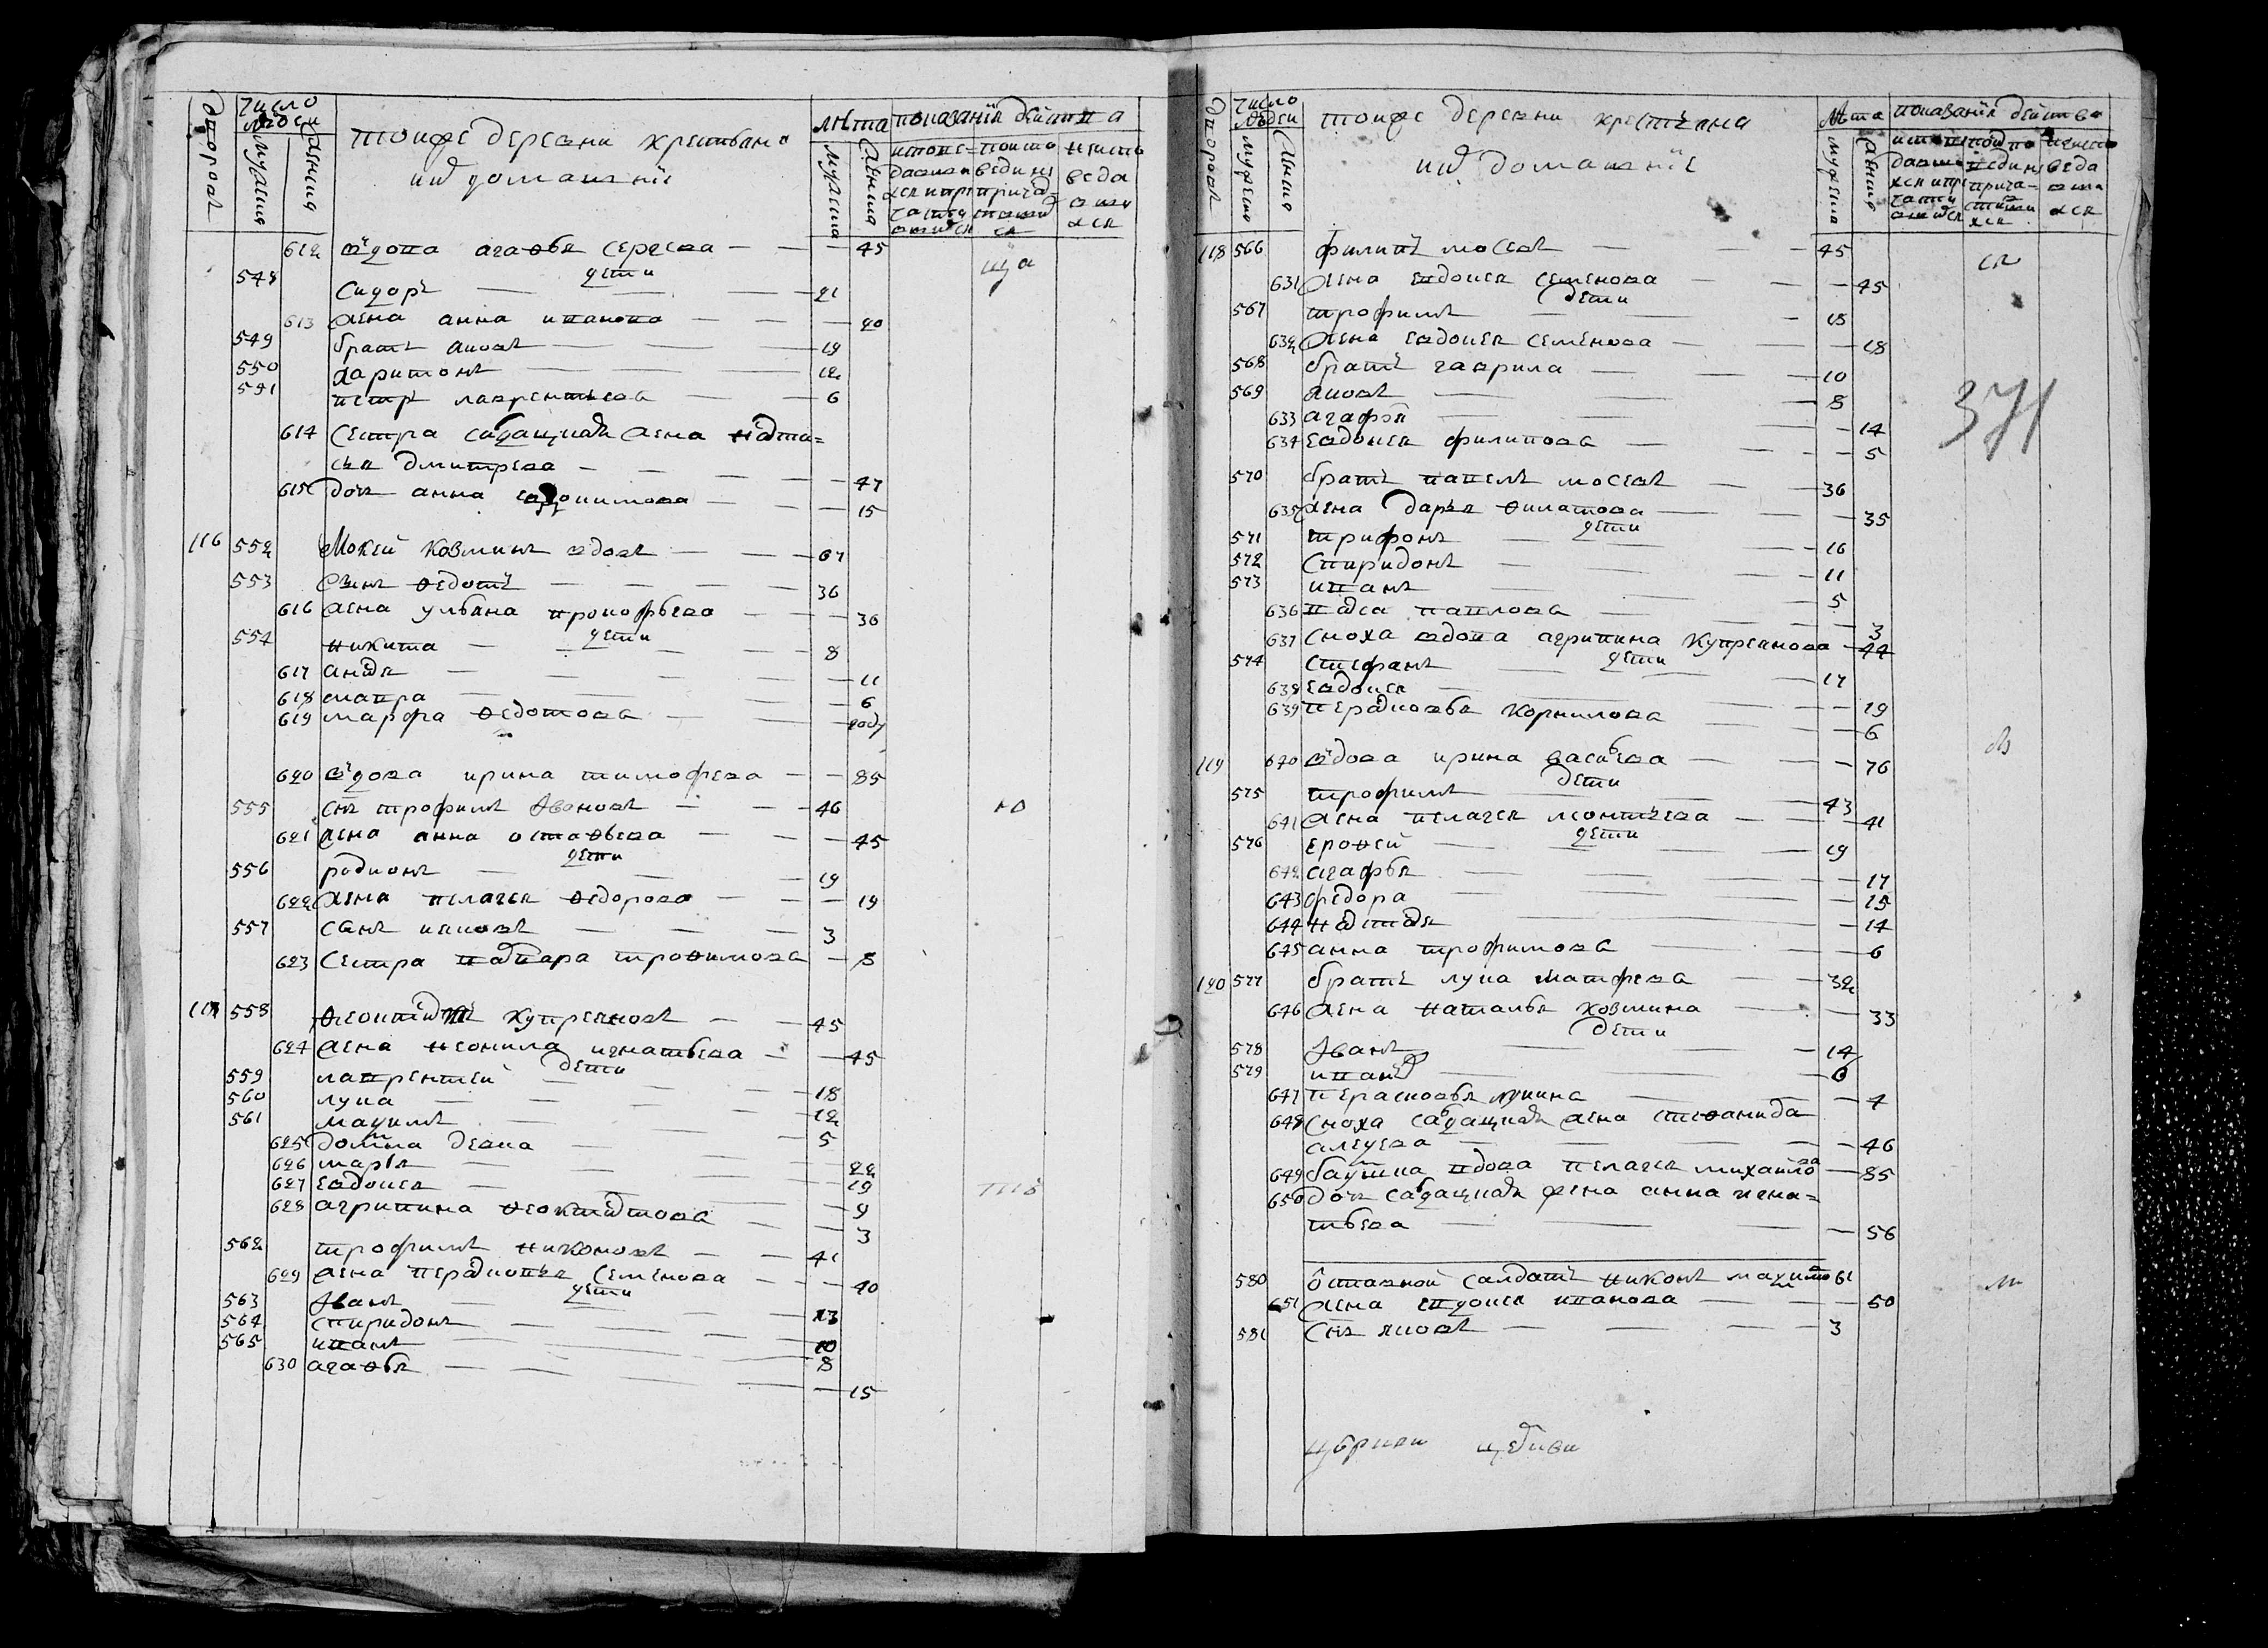 дворовъ
число людей
мужеска
женска
тояже деревни крестьяна
ихъ домашнiе
лѣта
мужеска
женска
показанiе действа
612 вдова агаѳья сергеева 45
дети
548 сидоръ 21
613 жена анна иванова 20
549 братъ яковъ 19
550 харитонъ 12
551 петръ лаврентьева 6
614 сестра салдацкая жена наста=
сья дмитрева 47
615 дочь анна 15
116 552 Мокей козминъ вдовъ 67
553 сынъ ѳедотъ 36
616 жена ульяна прокофьева 36
дети
554 никита 8
617 анна 11
618 мавра 6
619 марфа ѳедотова году
620 вдова ирина тимофеева 85
555 снъ трофимъ Ивановъ 46
621 жена анна остаѳьева 45
дети
556 родионъ 19
622 жена пелагея ѳедорова 19
557 сынъ иаковъ 3
623 Сестра варвара троѳимова 8
117 558 ѳеоктистъ купреяновъ 45
624 жена неонила игнатьева 45
дети
559 лаврентей 18
560 лука 12
561 максимъ 5
625 домна девка 22
626 марья 19
627 евдокея 9
628 агрипина ѳеоктистова 3
562 трофимъ никоновъ 41
629 жена парасковья Семенова 40
дети
563 Иванъ 13
564 спиридонъ 10
565 иванъ 8
630 агаѳья 15
дворовъ
число людей
мужеска
женска
тояже деревни крестьяна
ихъ домашнiе
лѣта
мужеска
женска
показанiе действа
118 566 филипъ мосеевъ 45
631 жена евдокея семенова 45
дети
567 трофимъ 18
632 жена евдокея семенова 18
568 братъ гаврила 10
569 яковъ 8
633 агафья 14
634 евдокея филипова 5
371
570 братъ павелъ мосеевъ 36
635 жена дарья ѳилатова 35
дети
571 трифонъ 16
572 Спиридонъ 11
573 иванъ 5
636 васса павлова 3
637 сноха вдова агрипина купреянова 44
дети
574 стефанъ 17
638 евдокея 19
639 парасковья корнилова 6
119 640 вдова ирина васильева 76
дети
575 трофимъ 43
641 жена пелагея леонтьева 41
дети
576 ероѳей 19
642 агафья 17
643 федора 15
644 настасья 14
645 анна трофимова 6
120 577 братъ лука матфеева 32
646 жена наталья козмина 33
дети
578 Иванъ 14
579 иванъ 6
647 парасковья лукина 4
648 сноха салдацкая жена стеѳанида
алексеева 46
649 баушка вдова пелагея михайлова 85
650 дочь салдацкая жена анна игна=
тьева 56
580 Оставной салдатъ никонъ максимовъ 61
651 жена евдокея иванова 50
581 снъ яковъ 3